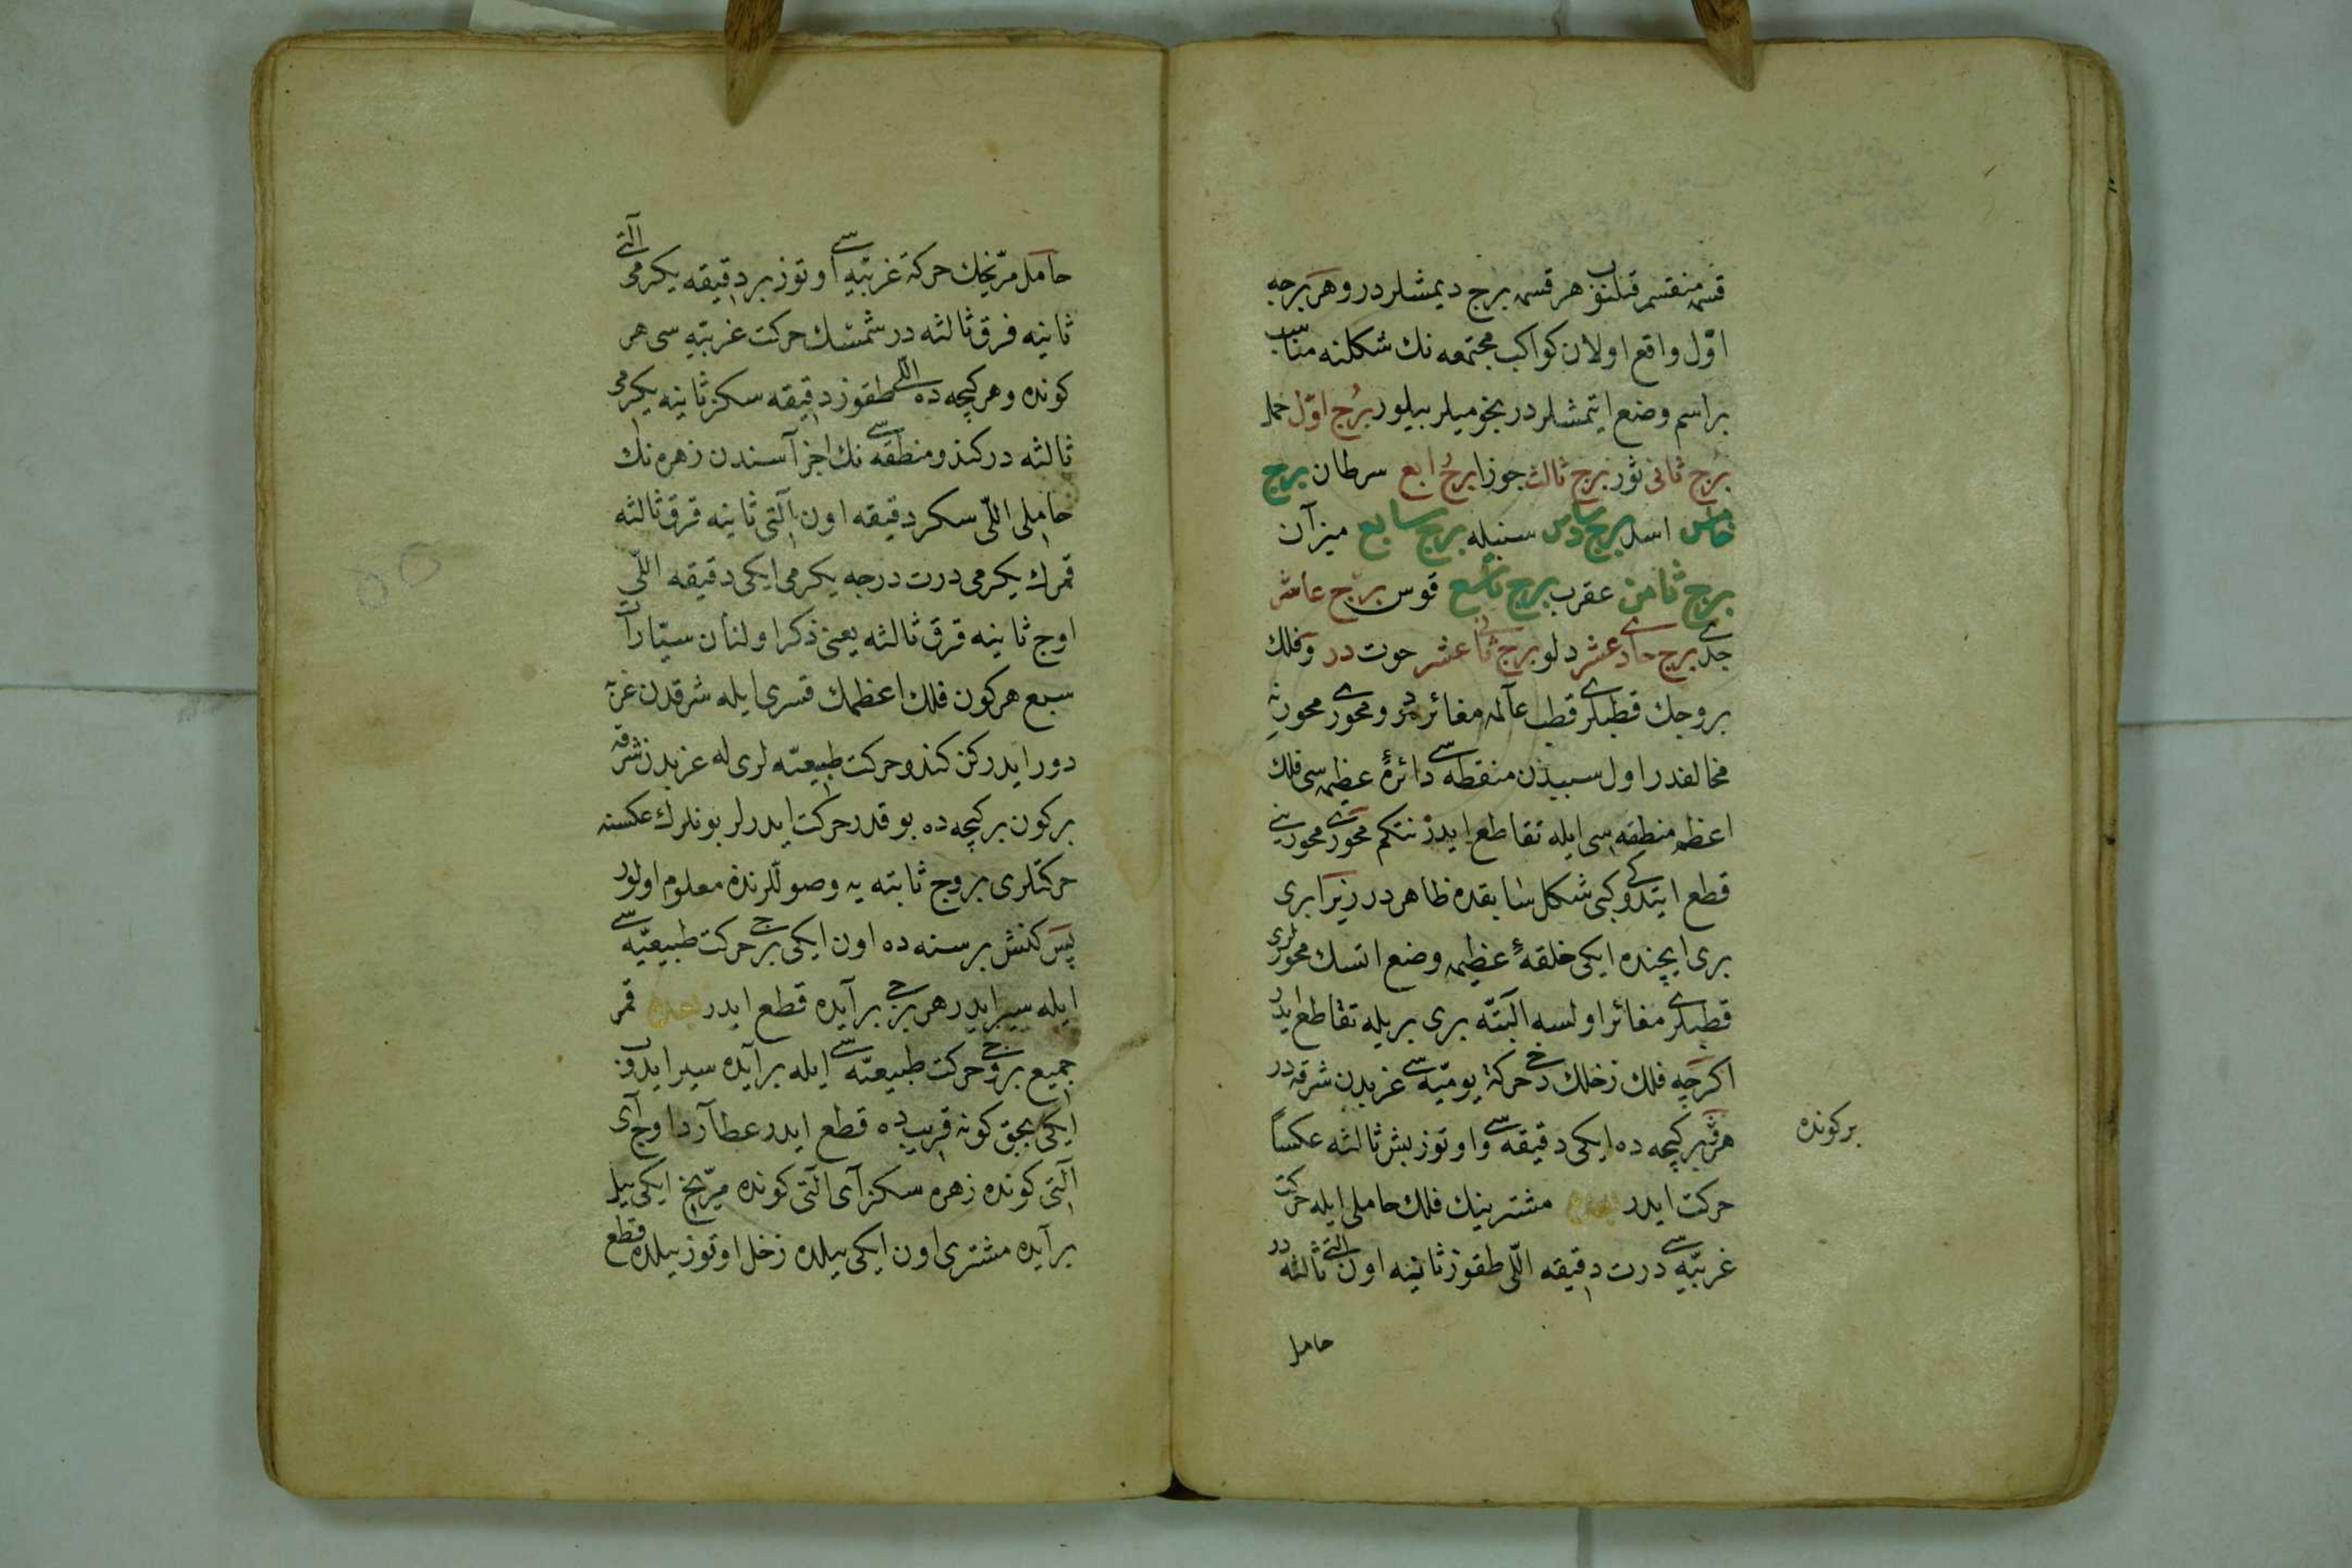 قسمه منقسم قلنوب هر قسمه برج ديمشلردر وهر برجه
اوّل واقع اولان كواكب مجتمعه نك شكلنه مناسب
بر اسم وضع ايتمشلردر نجوميلر بيلور برج اوّل حمل
برج ثانى ثور برج ثالث جوزا برج رابع سرطان برج
خامس اسد برج سادس سنبله برج سابع ميزان
برج ثامن عقرب برج تاسع قوس برج عاشر
جدى برج حادى عشر دلو برج ثانى عشر حوت در وفلك
بروجك قطبلرى قطب عالمه مغائر در ومحورى محورينه
مخالفدر اول سببدن منقطه سى دائرهٔ عظيمه سى فلك
اعظم منطقه سى ايله تقاطع ايدر نتكم محورى محورينى
قطع ايتدوكى كبى شكل سابقده ظاهر در زيرا برى
برى ايچنده ايكى خلقهٔ عظيمه وضع اتسك محورلرى
قطبلرى مغائر اولسه البتّه برى بريله تقاطع ايدر
اكرچه فلك زحلك دخى حركة يوميّه سى غربدن شرقه در
هر بر كيجه ده ايكى دقيقه سى واوتوز بش ثالثه عكساً
بر كونده
حركت ايدر مشترينك فلك حاملى ايله حركت
غربيّه سى درت دقيقه اللّى طقوز ثانيه اون التى ثالثه در
حامل
حامل مرّيخك حركة غربيّه سى اوتوز بر دقيقه يكرمى التى
ثانيه فرق ثالثه در شمسك حركت غربيّه سى هر
كونده وهر كيجه ده اللى طقوز دقيقه سكز ثانيه يكرمى
ثالثه در كندو منطقه سى نك اجزآسندن زهره نك
حاملى اللّى سكز دقيقه اون آلتى ثانيه قرق ثالثه
قمرك يكرمى درت درجه يكرمى ايكى دقيقه اللّى
اوچ ثانيه قرق ثالثه يعنى ذكر اولنان سيّارات
سبع هر كون فلك اعظمك قسرى ايله شرقدن غربه
دور ايدركن كندو حركت طبيعيّه لرى له غربدن شرقه
بر كون بر كيجه ده بو قدر حركت ايدرلر بونلرك عكسنه
حركتلرى بروج ثابته يه وصوللرنده معلوم اولور
پس كنش بر سنه ده اون ايكى برجى حركت طبيعيّه سى
ايله سير ايدر هر برجى بر آيده قطع ايدر قمر
جميع بروجى حركت طبيعيّه سى ايله بر آيده سير ايدوب
ايكى بچق كونه قريب ده قطع ايدر عطارد اوچ آى
آلتى كونده زهره سكز آى التى كونده مرّيخ ايكى ييل
بر آيده مشترى اون ايكى ييلده زحل اوتوز ييلده قطع